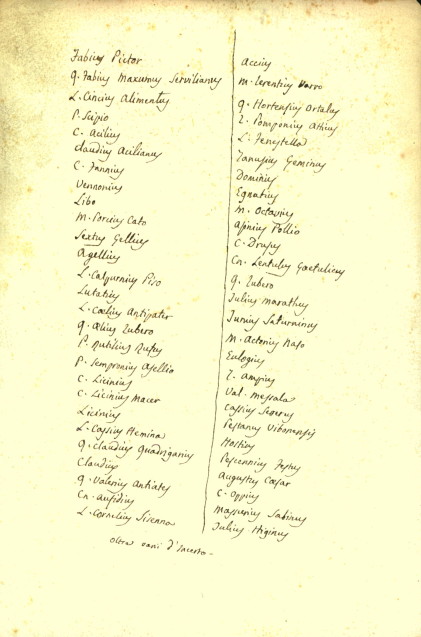 Fabius Pictor
Q. Fabius Maxumus Servilianus
L. Cincius Alimentus
P. Scipio
C. Acilius
Claudius Acilianus
C. Fannius
Vennonius
Libo
M. Porcius Cato
Sextus Gellius
Agellius
L. Calpurnius Piso
Lutatius
L. Cœlius Antipater
Q. Ælius Tubero
P. Rutilius Rufus
P. Sempronius Asellio
C. Licinius
C. Licinius Macer
Licinius
L. Cassius Hemina
Q. Claudius Quadrigarius
Claudius
Q. Valerius Antiates
Cn. Aufidius
L. Cornelius Sisenna
Accius
M. Terentius Varro
Q. Hortensius Ortalus
T. Pomponius Atticus
L. Fenestella
Tanusius Geminus
Dominius
Egnatius
M. Octavius
Asinius Pollio
C. Drusus
Cn. Lentulus Gaetulicus
Q. Tubero
Julius Marathus
Junius Saturninus
M. Actorius Naso
Eulogius
T. Ampius
Val. Messala
Cassius Severus
Pestanus Vibonensis
Hostius
Pescennius Festus
Augustus Cæsar
C. Oppius
Massurius Sabinus
Julius Higinus
Oltra varii d'incerto